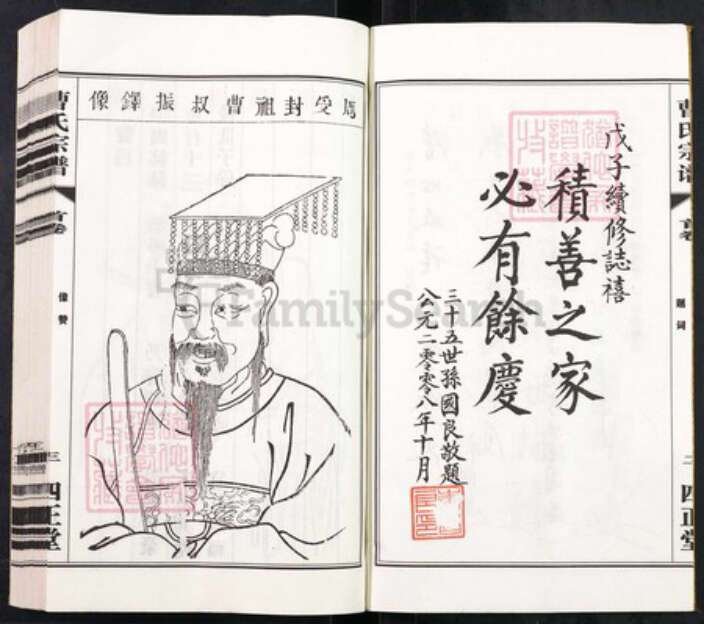 戊子續修誌禧
積善之家
必有餘慶
三十五世孫國良敬題
公元二零零八年十月
曹氏宗谱
首卷
題词
二
四正堂
周受封祖曹叔振鐸像
曹氏宗譜
首卷
像赞
三
四正堂
FamilySearch